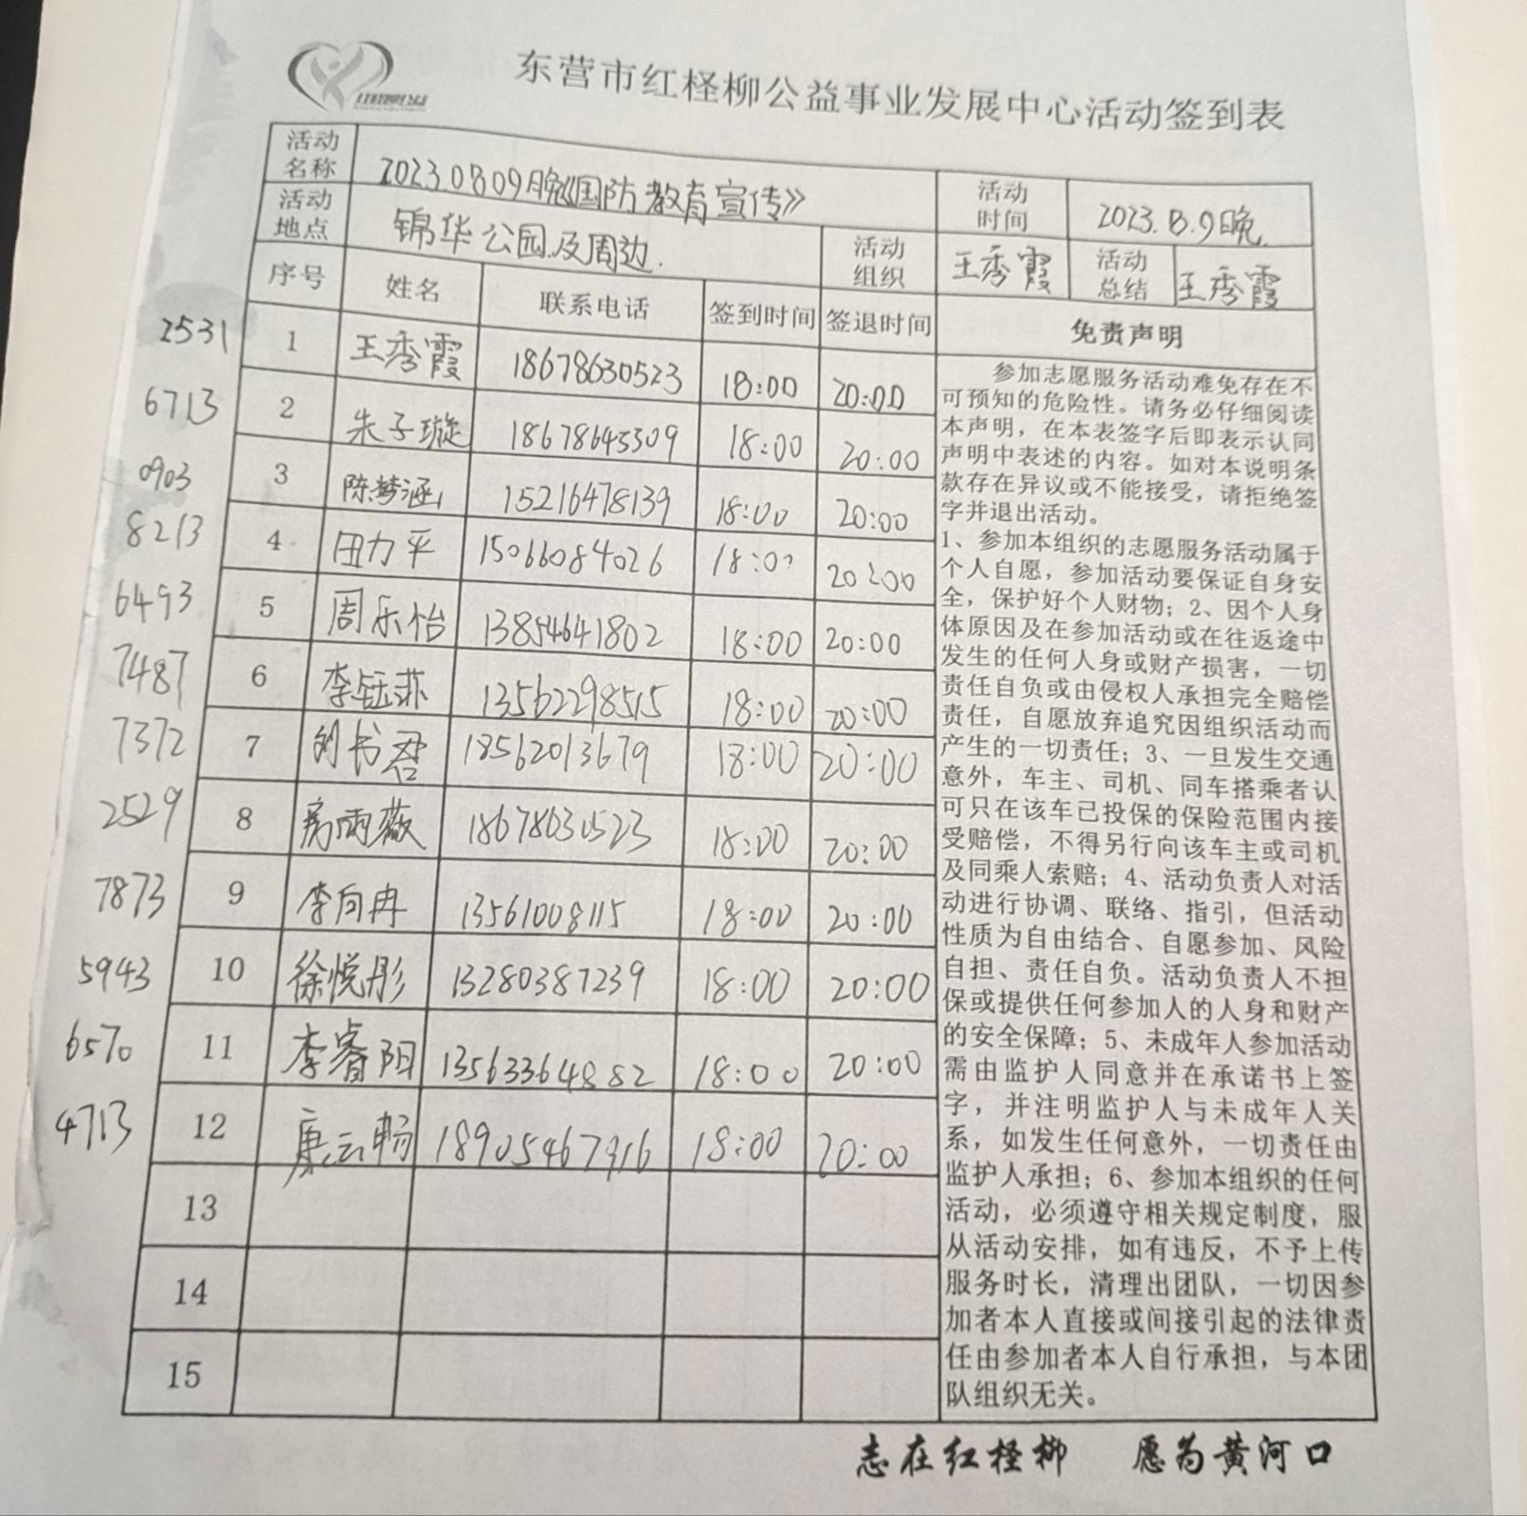 东营市红柽柳公益事业发展中心活动签到表
活动名称 2023.0809晚《国防教育宣传》 活动时间 2023.8.9晚
活动地点 锦华公园及周边. 活动组织 王秀霞 活动总结 王秀霞
序号 姓名 联系电话 签到时间 签退时间 免责声明
2531 1 王秀霞 18678630523 18:00 20:00
6713 2 朱子璇 18678645309 18:00 20:00
0903 3 陈梦涵 15216478139 18:00 20:00
8213 4 田力平 15066084026 18:00 20:00
6493 5 周乐怡 13854641802 18:00 20:00
7487 6 李钰菲 13562298515 18:00 20:00
7372 7 刘书君 18562013679 18:00 20:00
2529 8 房雨薇 18678630523 18:00 20:00
7873 9 李向冉 13561008115 18:00 20:00
5943 10 徐悦彤 13280387239 18:00 20:00
6570 11 李睿阳 13563364882 18:00 20:00
4713 12 康云畅 18905467916 18:00 20:00
13
14
15
参加志愿服务活动难免存在不
可预知的危险性。请务必仔细阅读
本声明，在本表签字后即表示认同
声明中表述的内容。如对本说明条
款存在异议或不能接受，请拒绝签
字并退出活动。
1、参加本组织的志愿服务活动属于
个人自愿，参加活动要保证自身安
全，保护好个人财物；2、因个人身
体原因及在参加活动或在往返途中
发生的任何人身或财产损害，一切
责任自负或由侵权人承担完全赔偿
责任，自愿放弃追究因组织活动而
产生的一切责任；3、一旦发生交通
意外，车主、司机、同车搭乘者认
可只在该车已投保的保险范围内接
受赔偿，不得另行向该车主或司机
及同乘人索赔；4、活动负责人对活
动进行协调、联络、指引，但活动
性质为自由结合、自愿参加、风险
自担、责任自负。活动负责人不担
保或提供任何参加人的人身和财产
的安全保障；5、未成年人参加活动
需由监护人同意并在承诺书上签
字，并注明监护人与未成年人关
系，如发生任何意外，一切责任由
监护人承担；6、参加本组织的任何
活动，必须遵守相关规定制度，服
从活动安排，如有违反，不予上传
服务时长，清理出团队，一切因参
加者本人直接或间接引起的法律责
任由参加者本人自行承担，与本团
队组织无关。
志在红柽柳 愿为黄河口